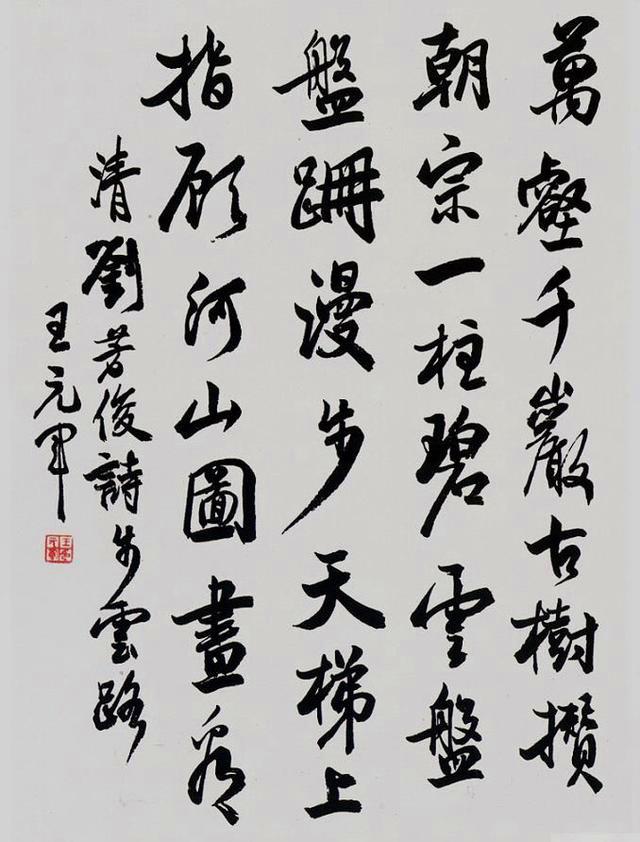 萬壑千巖古樹攢
朝宗一柱碧雲盤
盤跚漫步天梯上
指顧河山圖畫看
清劉俊詩步雲路
王元軍